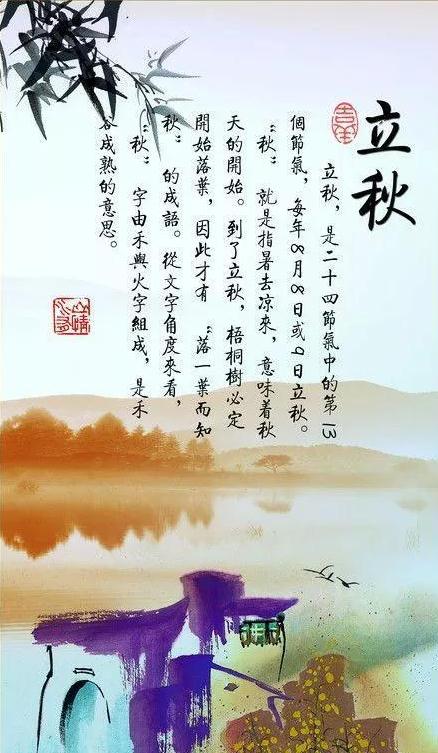 立秋
立秋，是二十四節氣中的第13
個節氣，每年8月8日或9日立秋。
“秋”就是指暑去凉來，意味着秋
天的開始。到了立秋，梧桐樹必定
開始落葉，因此才有“落一葉而知
秋”的成語。從文字角度來看，
“秋”字由禾與火字組成，是禾
谷成熟的意思。